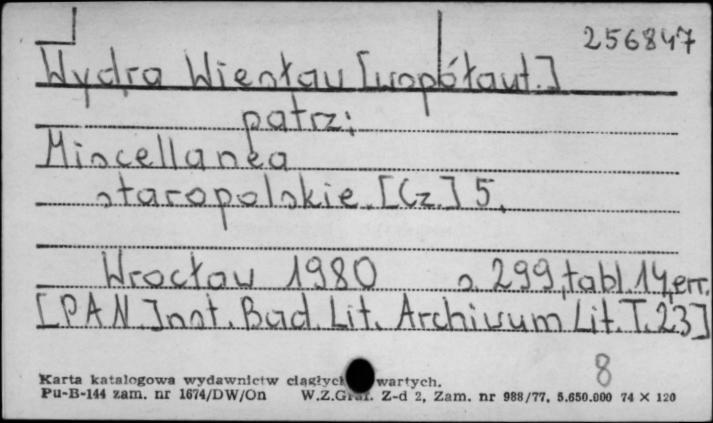 256847
Wydra Wiesław [współaut.]
patrz:
Miscellanea
staropolskie. [Cz.] 5.
Wrocław 1980 s. 299, tabl. 14, err.
[PAN. Inst. Bad. Lit. Archiwum Lit. T. 23]
8
Karta katalogowa wydawnictw ciągłych wartych.
Pu-B-144 zam. nr 1674/DW/On W.Z.Graf. Z-d 2, Zam. nr 988/77. 5.650.000 74 × 120